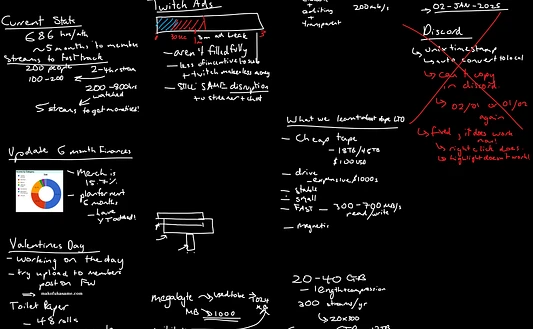 Current State
686 hrs/mth
~5 months to monetise
streams to fast track
200 people
2-4hr stream
100-200
200-800hrs
watched
5 streams to get monetised!
Update 6 month finances
- Merch is
15.7%
- planter rent
6 months
- have
YT added!
Valentines Day
- working on the day
- try upload to members
post on FW
Toilet Paper
- 48 rolls
Twitch Ads
30sec
3m ad break
- aren't filled fully
- less of incentive to sub
+ twitch makes less money
- STILL SAME disruption
to streamer + chat
megabyte
MB
1000
1024
+
editing
+
transparent
200mb/s
What we learnt about tape LTO
- Cheap tape
- 18TB/45TB
$100USD
- drive
- expensive $1000s
- stable
- small
- FAST - 300-700MB/s
read/write
- magnetic
20-40 GB
- length + compression
300 streams/yr
20x300
02-JAN-2025
Discord
unix timestamp
auto convert to local
can't copy
in discord.
02/01 or 01/02
again
it does work
now!
right click does.
highlight doesn't work!